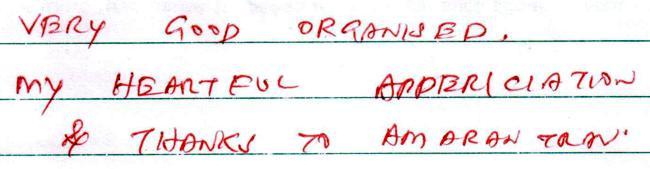 VERY GOOD ORGANISED.
MY HEARTFUL APPERICIATION
& THANKS TO AMARAN TRAV.